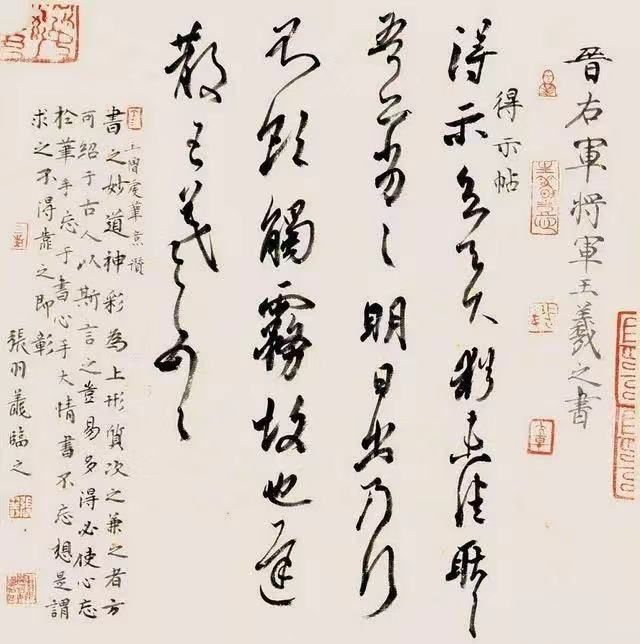 晉右軍将軍王羲之書
得示帖
得示知足下猶未佳耿〻
吾亦劣〻明日出乃行
不欲觸霧故也遲
散王羲之頓首
王僧虔筆意贊
書之妙道神彩為上形質次之兼之者方
可紹于古人以斯言之豈易多得必使心忘
於筆手忘于書心手大情書不忘想是謂
求之不得靠之即彰
張羽臨之